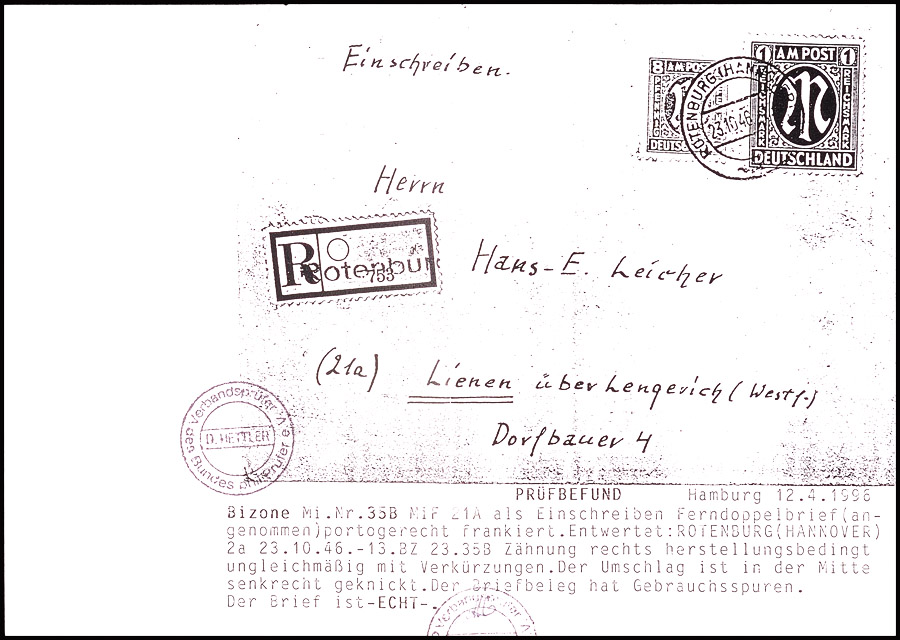 Einschreiben.
8 AM POST
DEUTSCHLAND
1 AM POST 1
REICHSMARK
REICHSMARK
DEUTSCHLAND
ROTENBURG (HANN
23.10.46
Herrn
R Rotenburg
753
Hans-E. Leicher
(21a) Lienen über Lengerich (Westf.)
Dorfbauer 4
des Bundes phil. Prüfer e.V. Verbandsprüfer
D. HETTLER
PRÜFBEFUND Hamburg 12.4.1996
Bizone Mi.Nr.35B MiF 21A als Einschreiben Ferndoppelbrief(an-
genommen)portogerecht frankiert.Entwertet:ROTENBURG(HANNOVER)
2a 23.10.46.-13.BZ 23.35B Zähnung rechts herstellungsbedingt
ungleichmäßig mit Verkürzungen.Der Umschlag ist in der Mitte
senkrecht geknickt.Der Briefbeleg hat Gebrauchsspuren.
Der Brief ist-ECHT-.
Verbandsprüfer